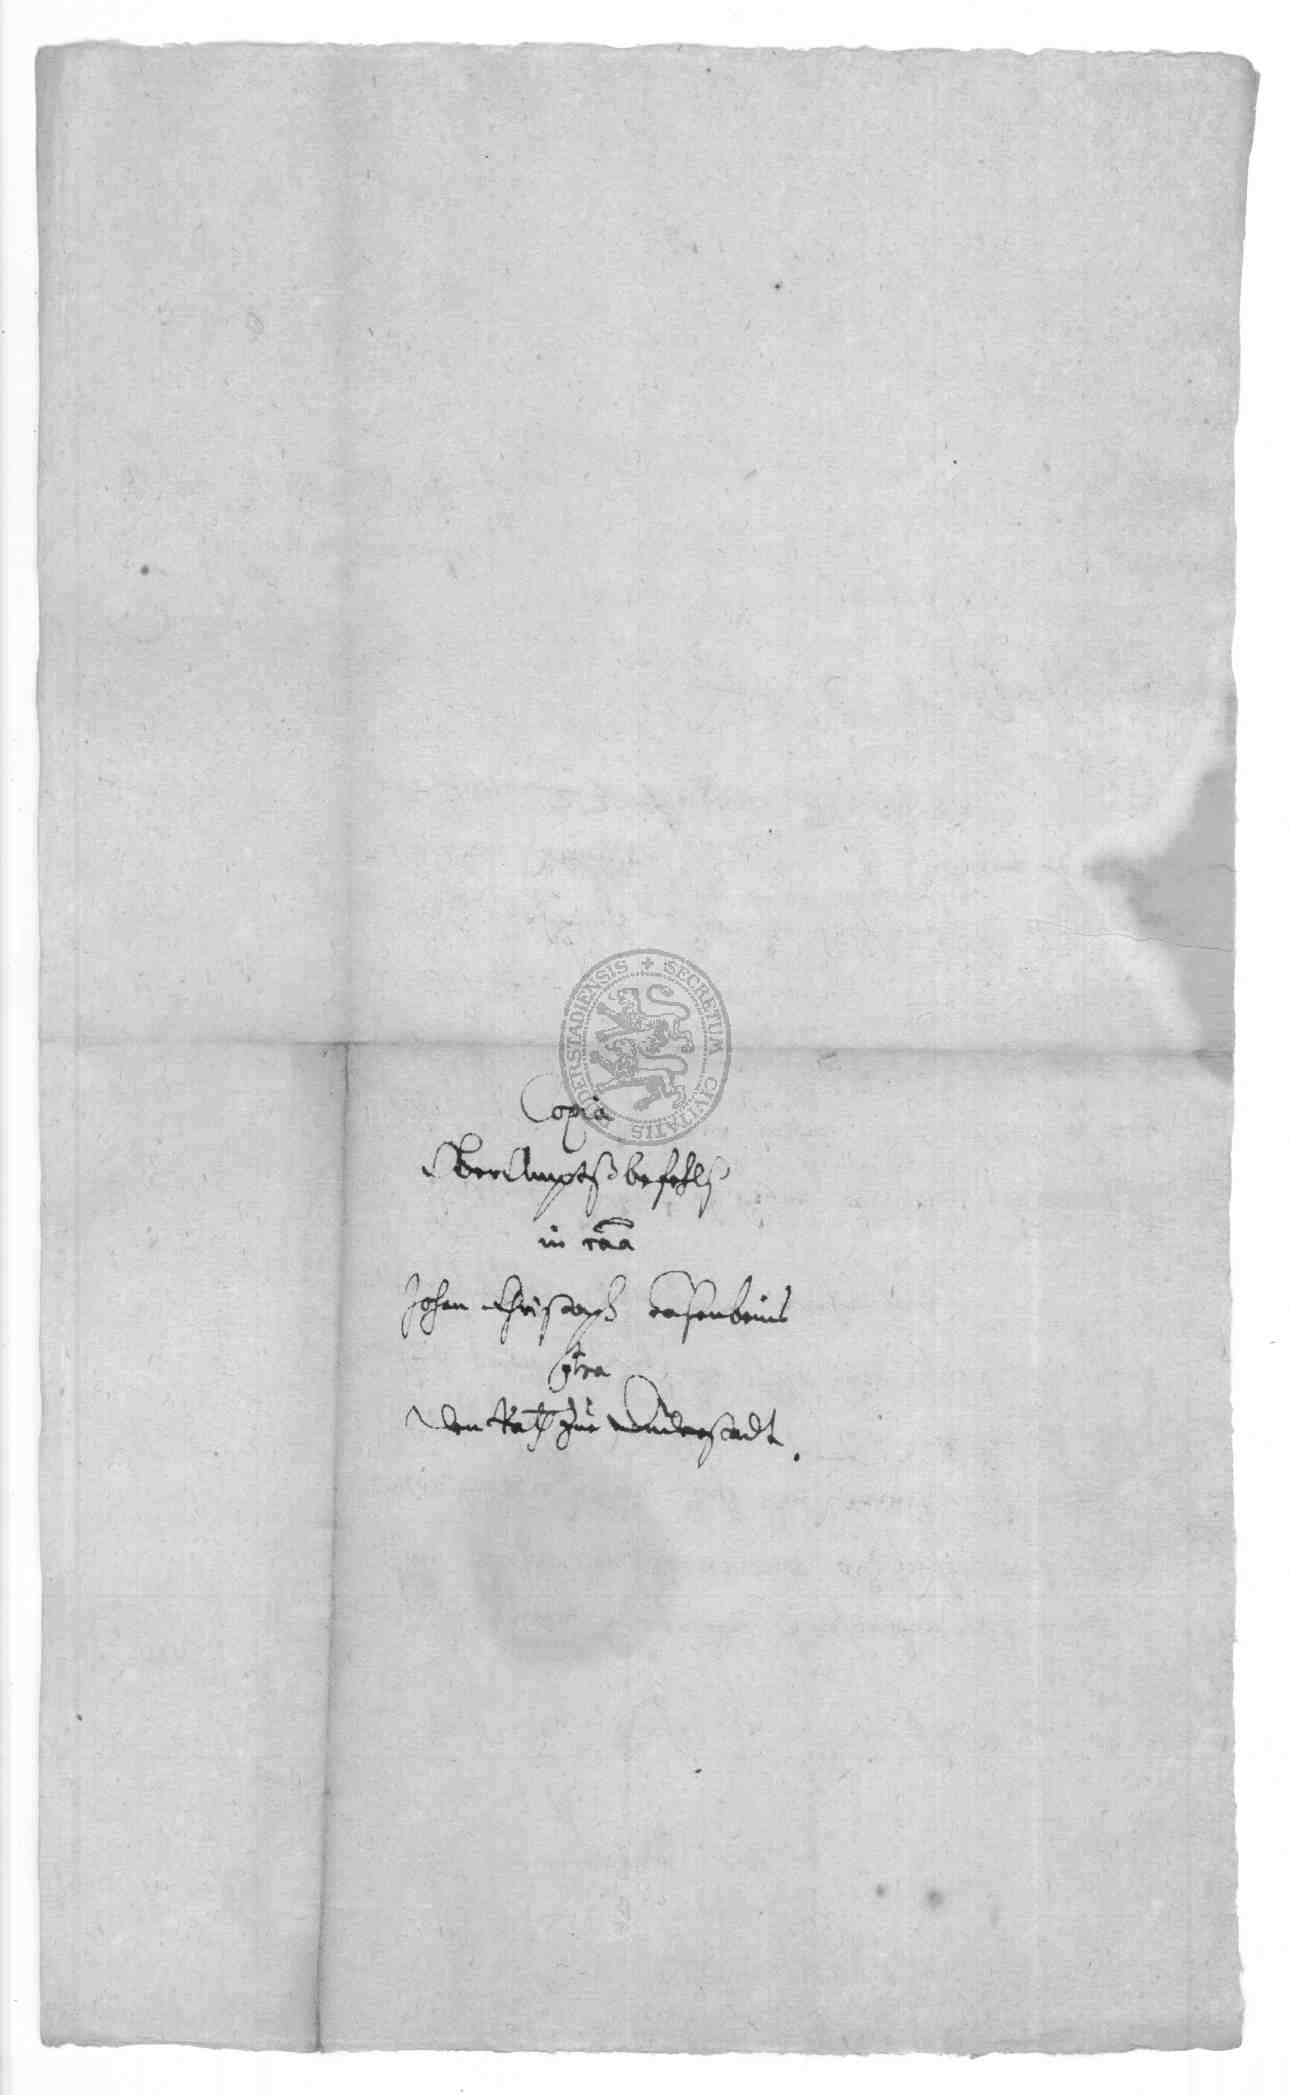 SECRETUM CIVITATIS DUDERSTADIENSIS
Copia
Ober Ambtsbefehls
in caa
Johan Christoph Casenbeins
ctra
den Rath zue Duderstadt.